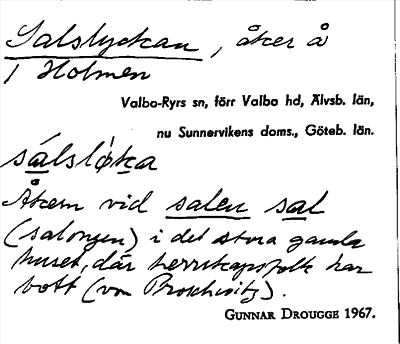 Salslyckan, åker å
1 Holmen
Valbo-Ryrs sn, förr Valbo hd, Älvsb. län,
nu Sunnervikens doms., Göteb. län.
sálslø̀ka
Åkern vid salen sal
(salongen) i det stora gamla
huset, där herrskapsfolk har
bott (von Proschwitz).
GUNNAR DROUGGE 1967.